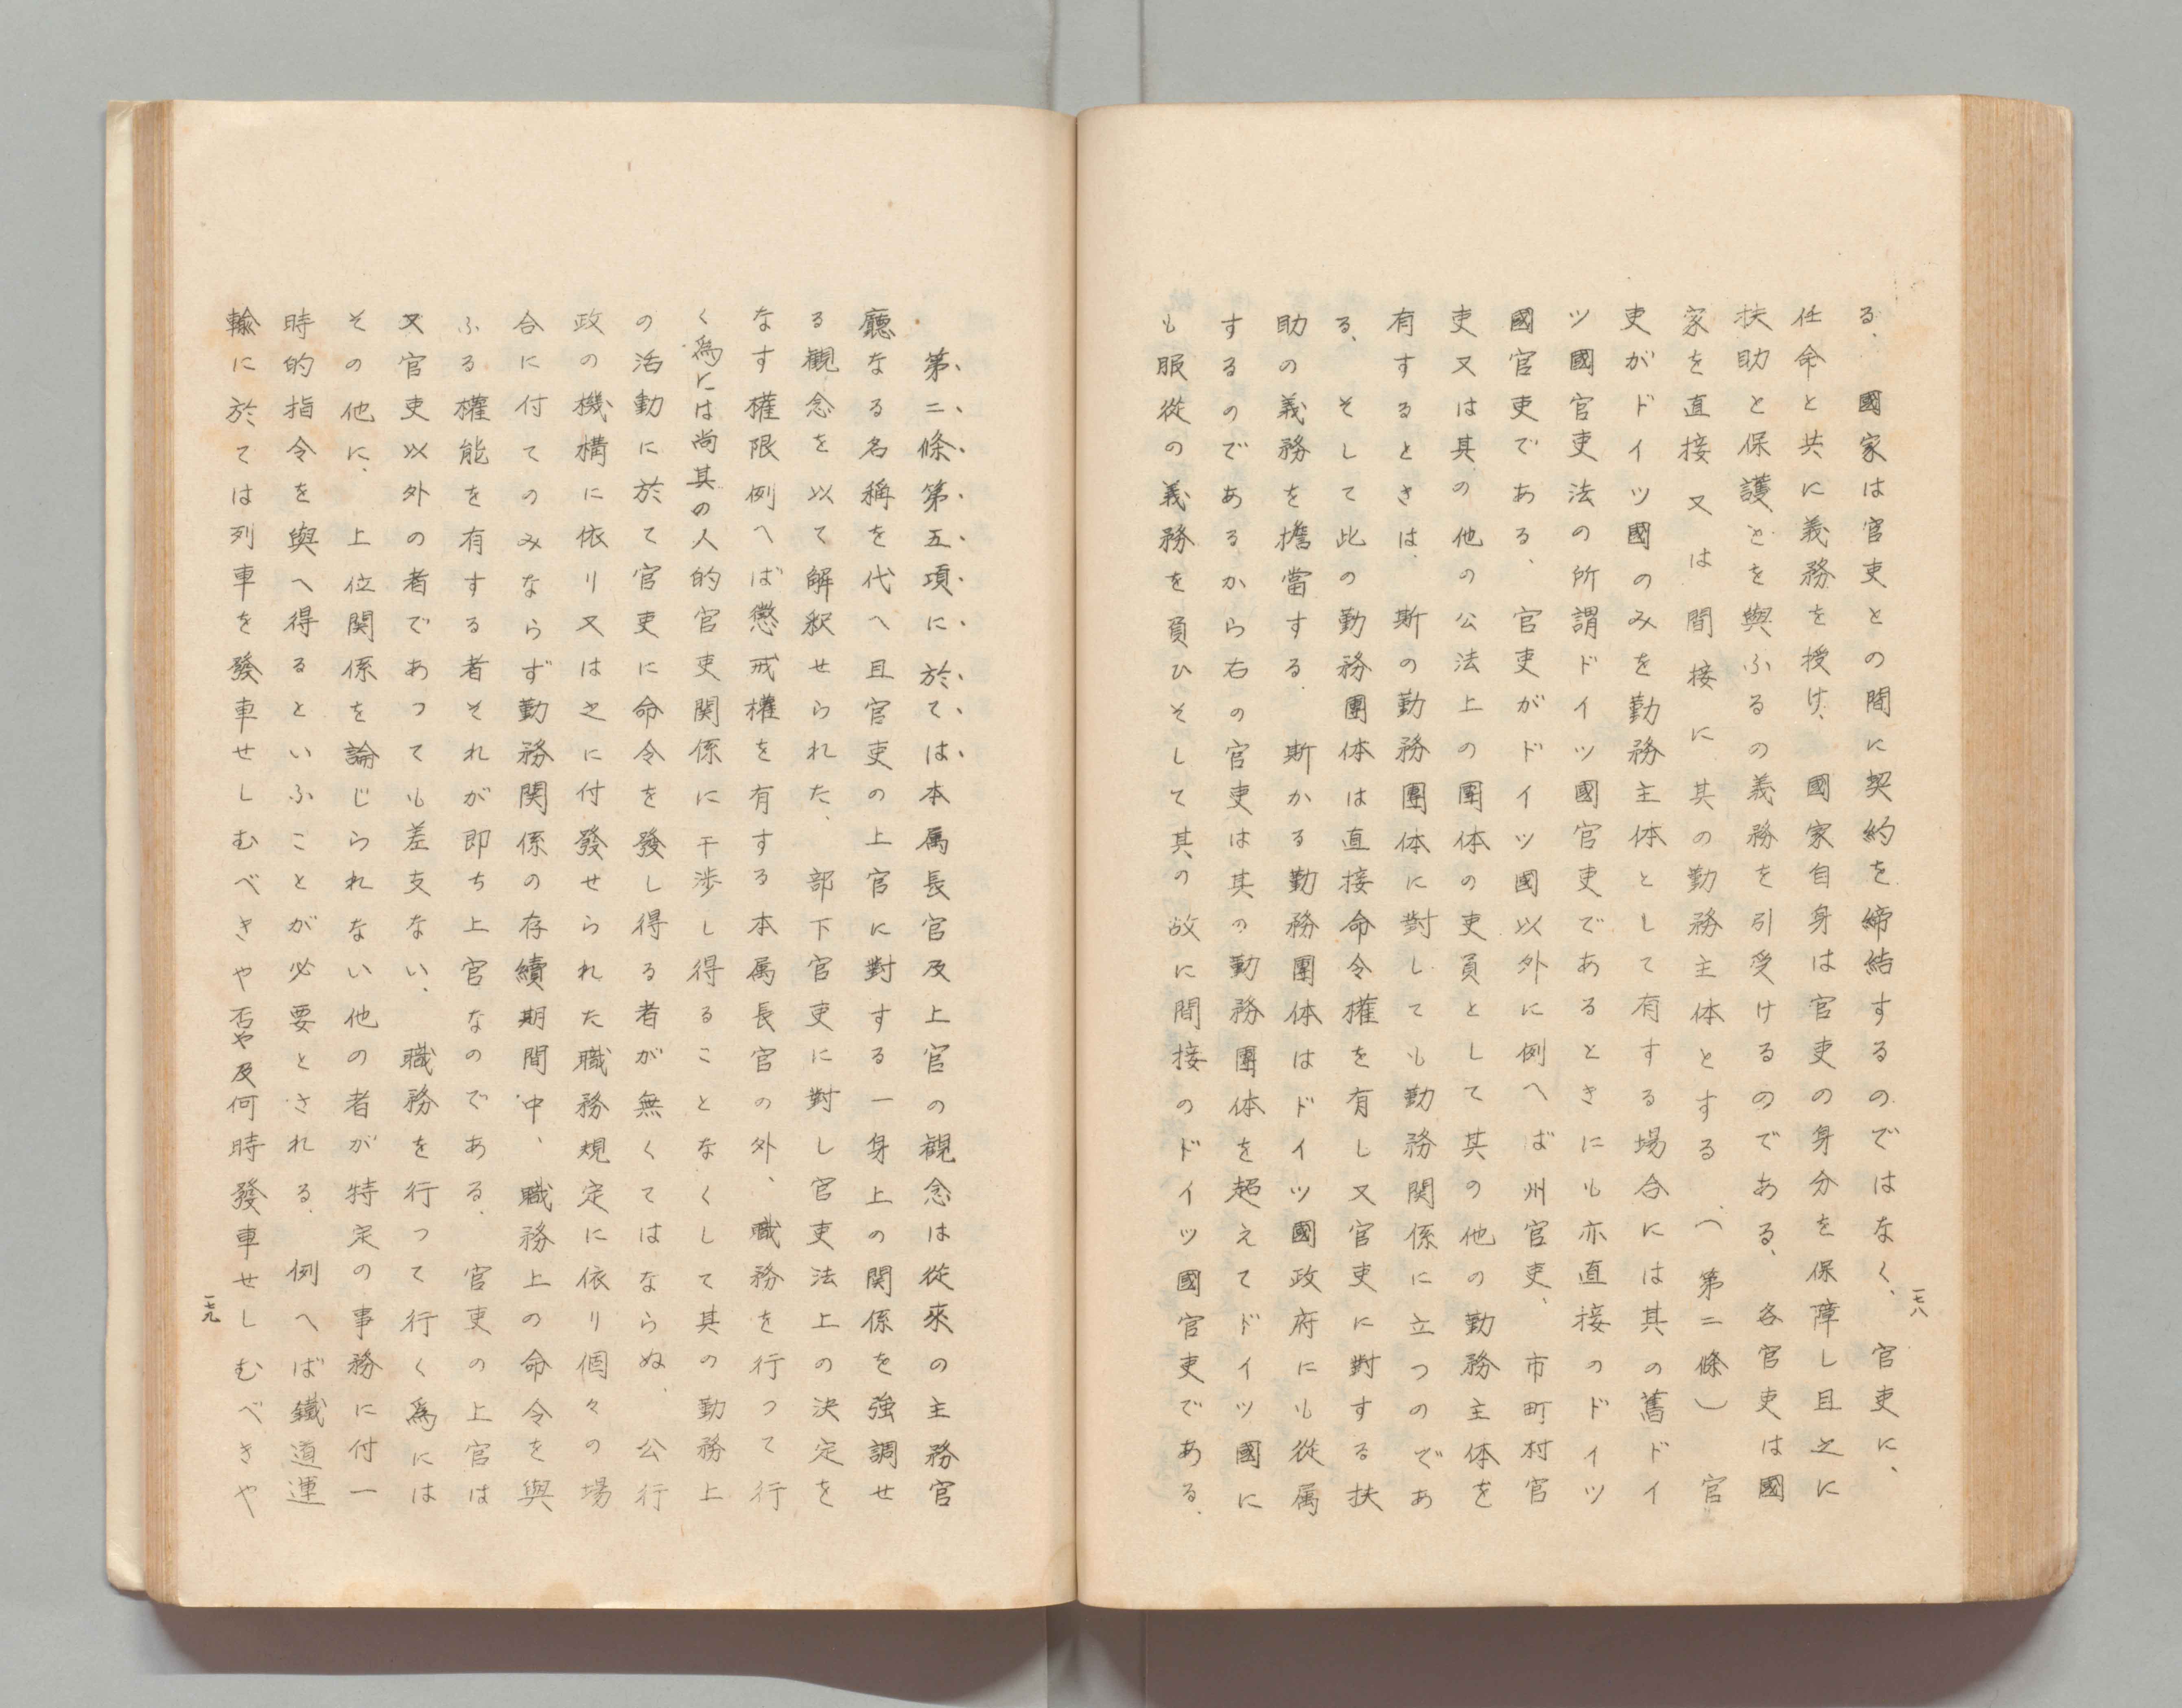 る、國家は官吏との間に契約を締結するのではなく、官吏に、
任命と共に義務を授け、國家自身は官吏の身分を保障し且之に
扶助と保護とを與ふるの義務を引受けるのである、各官吏は國
家を直接又は間接に其の勤務主体とする、(第二條)官
吏がドイツ國のみを勤務主体として有する場合には其の舊ドイ
ツ國官吏法の所謂ドイツ國官吏であるときにも亦直接のドイツ
國官吏である、官吏がドイツ國以外に例へば州官吏、市町村官
吏又は其の他の公法上の團体の吏員として其の他の勤務主体を
有するときは、斯の勤務團体に對しても勤務関係に立つのであ
る、そして此の勤務團体は直接命令權を有し又官吏に對する扶
助の義務を擔當する、斯かる勤務團体はドイツ國政府にも從属
するのであるから右の官吏は其の勤務團体を超えてドイツ國に
も服從の義務を負ひそして其の故に間接のドイツ國官吏である、
一七八
第二條第五項に於ては本属長官及上官の観念は從來の主務官
廳なる名稱を代へ且官吏の上官に對する一身上の関係を強調せ
る観念を以て解釈せられた、部下官吏に對し官吏法上の決定を
なす權限例へば懲戒權を有する本属長官の外、職務を行つて行
く爲には尚其の人的官吏関係に干渉し得ることなくして其の勤務上
の活動に於て官吏に命令を發し得る者が無くてはならぬ、公行
政の機構に依リ又は之に付發せられた職務規定に依リ個々の場
合に付てのみならず勤務関係の存續期間中、職務上の命令を與
ふる權能を有する者それが即ち上官なのである、官吏の上官は
又官吏以外の者であつても差支ない、職務を行つて行く爲には
その他に、上位関係を論じられない他の者が特定の事務に付一
時的指令を與へ得るといふことが必要とされる、例へば鐵道運
輸に於ては列車を發車せしむべきや否や及何時發車せしむべきや
一七九